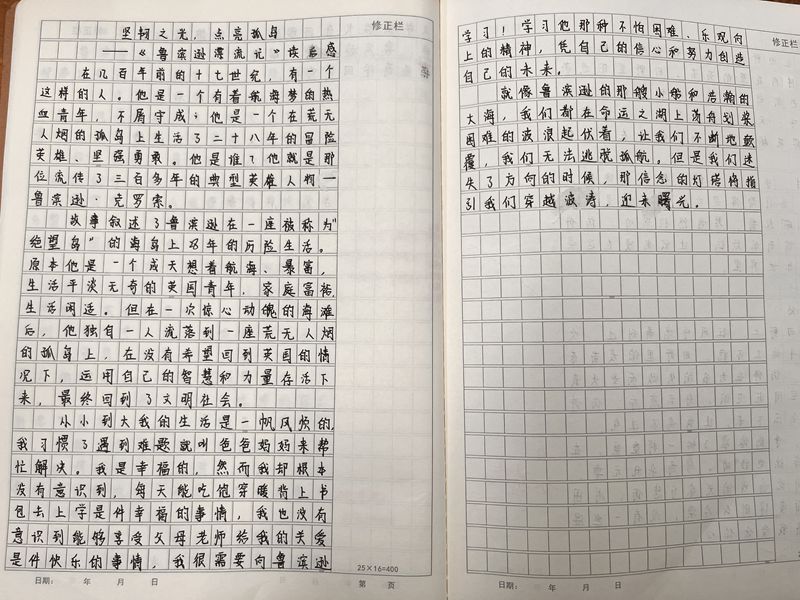 坚韧之光，点亮孤岛
——《鲁滨逊漂流记》读后感
在几百年前的十七世纪，有一个
这样的人。他是一个有着航海梦的热
血青年，不屑守成；他是一个在荒无
人烟的孤岛上生活了二十八年的冒险
英雄、坚强勇敢。他是谁？他就是那
位流传了三百多年的典型英雄人物——
鲁滨逊·克罗索。
故事叙述了鲁滨逊在一座被称为“
绝望岛”的海岛上28年的历险生活。
原本他是一个成天想着航海、暴富，
生活平淡无奇的英国青年，家庭富裕，
生活闲适。但在一次惊心动魄的海滩
后，他独自一人流落到一座荒无人烟
的孤岛上，在没有希望回到英国的情
况下，运用自己的智慧和力量存活下
来，最终回到了文明社会。
从小到大我的生活是一帆风顺的，
我习惯了遇到难题就叫爸爸妈妈来帮
忙解决。我是幸福的，然而我却根本
没有意识到，每天能吃饱穿暖背上书
包去上学是件幸福的事情，我也没有
意识到能够享受父母老师给我的关爱
是件快乐的事情，我很需要向鲁滨逊
25×16=400
日期： 年 月 日
第 页
修正栏
学习！学习他那种不怕困难、乐观向
上的精神，凭自己的信心和努力创造
自己的未来。
就像鲁滨逊的那艘小船和浩瀚的
大海，我们都在命运之湖上荡舟划桨
困难的波浪起伏着，让我们不断地颠
覆，我们无法逃脱孤航。但是我们迷
失了方向的时候，那信念的灯塔将指
引我们穿越波涛，迎来曙光。
修正栏
日期： 年 月 日